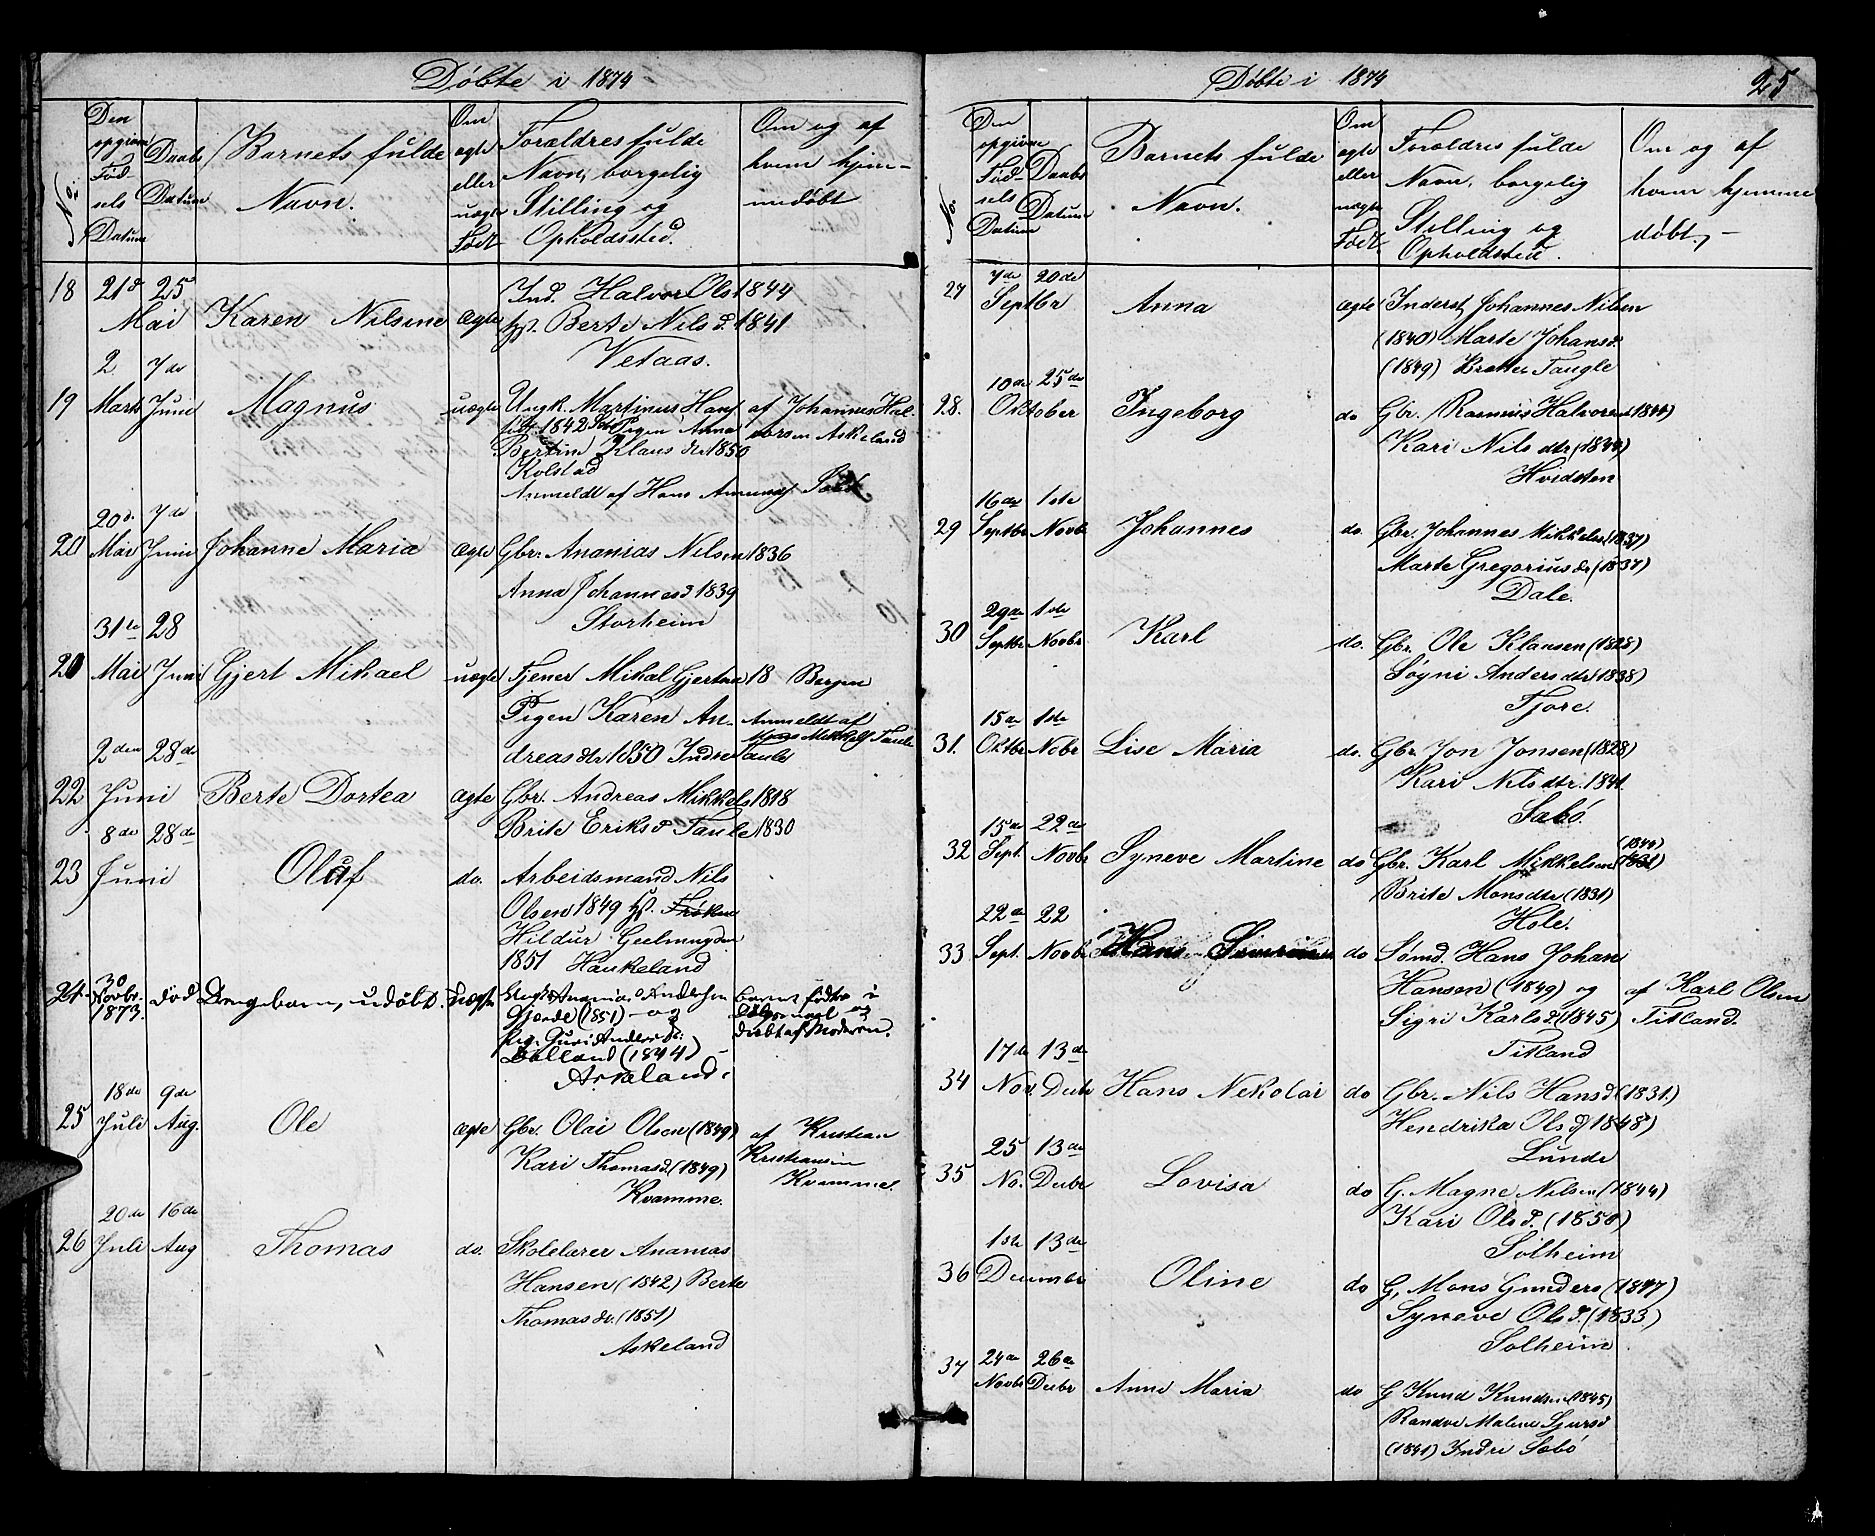 Döbte i 1874
No.
Den opgivne Fødsels Datum
Daabs Datum
Barnets fulde Navn.
Om ægte eller uægte Født
Forældres fulde Navn, borgelig Stilling og Opholdssted.
Om og af hvem hjemmedøbt
18 21d 25 Mai Karen Nilsine ægte Ind. Halvor Ols 1844
h/. Berte Nils d. 1841
Vetaas.
2 7de
19 Marts Juni Magnus uægte Ungk. Martinus Hans/ af Johannes Hal-
født 1842 Pigen Anna vorsen Askeland
Bertine Klaus dr 1850
Kolstad
Anmeldt af Hans Amund/
20d. 7de
20 Mai Juni Johanne Maria ægte Gbr. Ananias Nilsen 1836
Anna Johannesd 1839
Storheim
31te 28
21 Mai Juni Gjert Mikael uægte Tjener Mikal Gjertsen 18 Bergen
Pigen Karen An- Anmeldt af
dreas dr 1850 Indre Taule Mons Mikkels/ Taule
2den 28de
22 Juni Berte Dortea ægte Gbr. Andreas Mikkels 1818
Brite Eriks d Taule 1830
8de 28de
23 Juni Olaf do. Arbeidsmand Nils
Olsen 1849 h/. Frøken
Hildur Geelmuyden
1851 Haukeland
24. 30 Novbr. 1873. død Drengebarn, udøbt. uægte Ananias Andersen Barnet fødtes i
Gjerde (1851) - og Dølgsmaal og
Pig. Guri Anders d: dræbt af Moderen.
Dalland (1844)
Askeland.
18de 9de
25 Juli Aug. Ole ægte Gbr. Olai Olsen (1849) af Kristian
Kari Thomasd. (1849) Kristiansen
Kvamme. Kvamme.
20de 16de
26 Juli Aug Thomas do. Skolelærer Ananias
Hansen (1842) Berte
Thomas dr. (1851)
Askeland
Döbte i 1874 25
No.
Den opgivne Fødsels Datum
Daabs Datum
Barnets fulde Navn.
Om ægte eller uægte Født
Forældres fulde Navn, borgelig Stilling og Opholdsted.
Om og af hvem hjemme døbt, -
7de 20de
27 Septbr Anna ægte Inderst Johannes Nilsen
(1840) Marte Johansd.
(1849) Tangle
10de 25de
28. Oktober Ingeborg do Gbr. Rasmus Halvorsen 1844)
Kari Nils dtr (1834)
Hvidsten
16de 1ste
29 Septbr Novbr Johannes do. Gbr. Johannes Mikkelsen (1837)
Marte Gregorius dr (1837)
Dale.
29de 1ste
30 Septbr Novbr Karl do. Gbr. Ole Klausen (1828)
Søgni Anders dtr 1838)
Fjore.
15de 1ste
31. Oktbr Nobr Lise Maria do. Gbr Jon Jonsen (1828)
Kari Nils dtr. 1841.
Sæbö
15de 22de
32 Sept. Novbr Syneve Martine do Gbr. Karl Mikkelsen (1844)
Brite Monsdtr (1831)
Hole.
22de 22
33 Sept. Novbr Hans do Sømd. Hans Johan
Hansen (1849) og af Karl Olsen
Sigri Karls d. (1845) Titland.
Titland
17de 13de
34 Nov. Decbr Hans Nekolai do Gbr. Nils Hansd (1831)
Hendrika Ols d (1848)
Lunde
25 13de
35 No. Decbr Lovisa do G. Magne Nilsen (1844)
Kari Ols d. (1850)
Solheim
1ste 13de
36 December Oline do G, Mons Gunders (1847)
Syneve Ols d. (1833)
Solheim
24de 26de
37 Novbr Decbr Anne Maria do G Knud Knudsen (1845)
Randve Malene Sjursd
(1841) Indre Sæbö